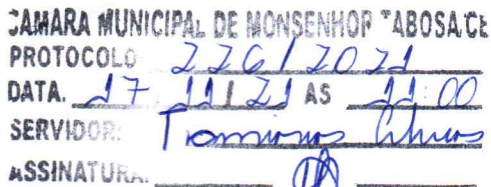 CAMARA MUNICIPAL DE MONSENHOR TABOSA/CE
PROTOCOLO: 226/2021
DATA. 17 11/21 AS 11:00
SERVIDOR:
ASSINATURA: